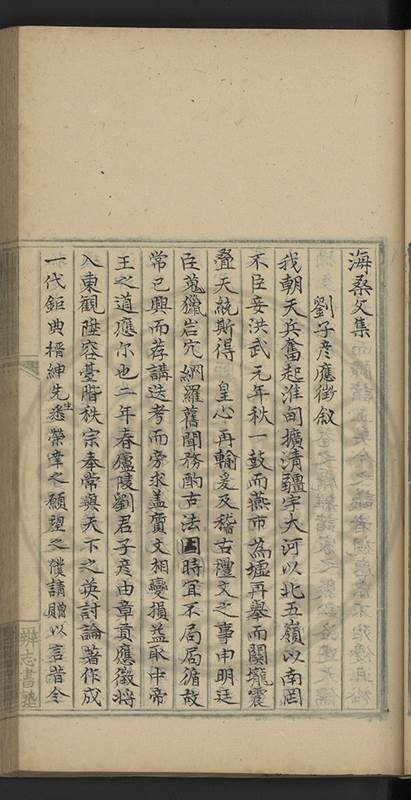 海桑文集
劉子彦應徵叙
我朝天兵奮起淮甸擴清疆宇大河以北五嶺以南罔
不臣妾洪武元年秋一鼓而燕市為墟再舉而關壠震
疊天統斯得 皇心再輸爰及稽古禮文之事申明廷
臣蒐獵岩穴網羅舊聞務酌古法因時冝不局局循故
常已興而荐講迭考而旁求盖質文相變損益取中帝
王之道應尔也二年春廬陵劉君子彦由章貢應徵将
入東觀陞容臺階秩宗奉常與天下之英討論著作成
一代鉅典搢紳先生悉榮幸之願望之僕請贈以言昔今
辨志書塾